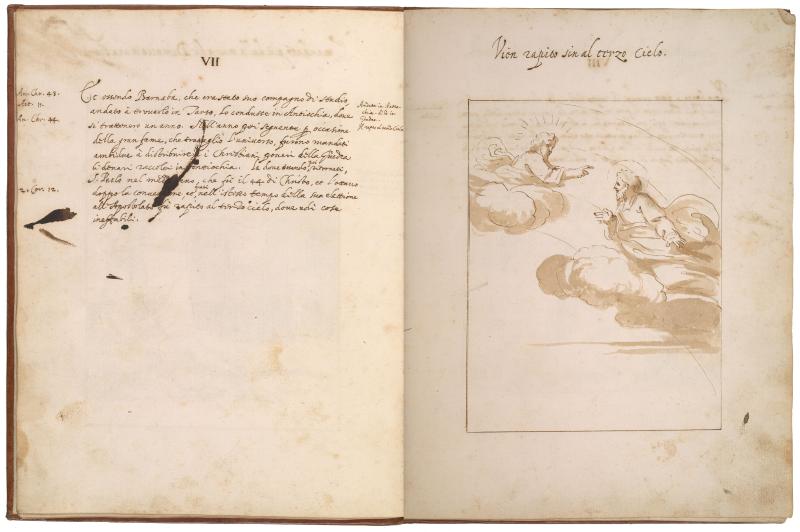 VII
An. Chr. 43.
Act. 11.
An. Chr. 44.
2. Cor. 12.
Et essendo Barnaba, che era stato suo compagno di studio
andato à trovarlo in Tarso, lo condusse in Antiochia, dove
si trattenero un anno. Nell'anno poi seguente p occasione
della gran fame, che travagliò l'universo, furono mandati
ambidue à distribuire à i Christiani poveri della Giudea
li denari raccolti in Antiochia. Là dove essendo poi ritornati,
S. Paolo nel anno, che fù il 44 di Christo, et l'ottavo
doppo la conversione et quasi nell' stesso tempo della sua elettione
all'Apostolato fù rapito al terzo cielo, dove udì cose
ineffabili.
Vien rapito sin al terzo Cielo.